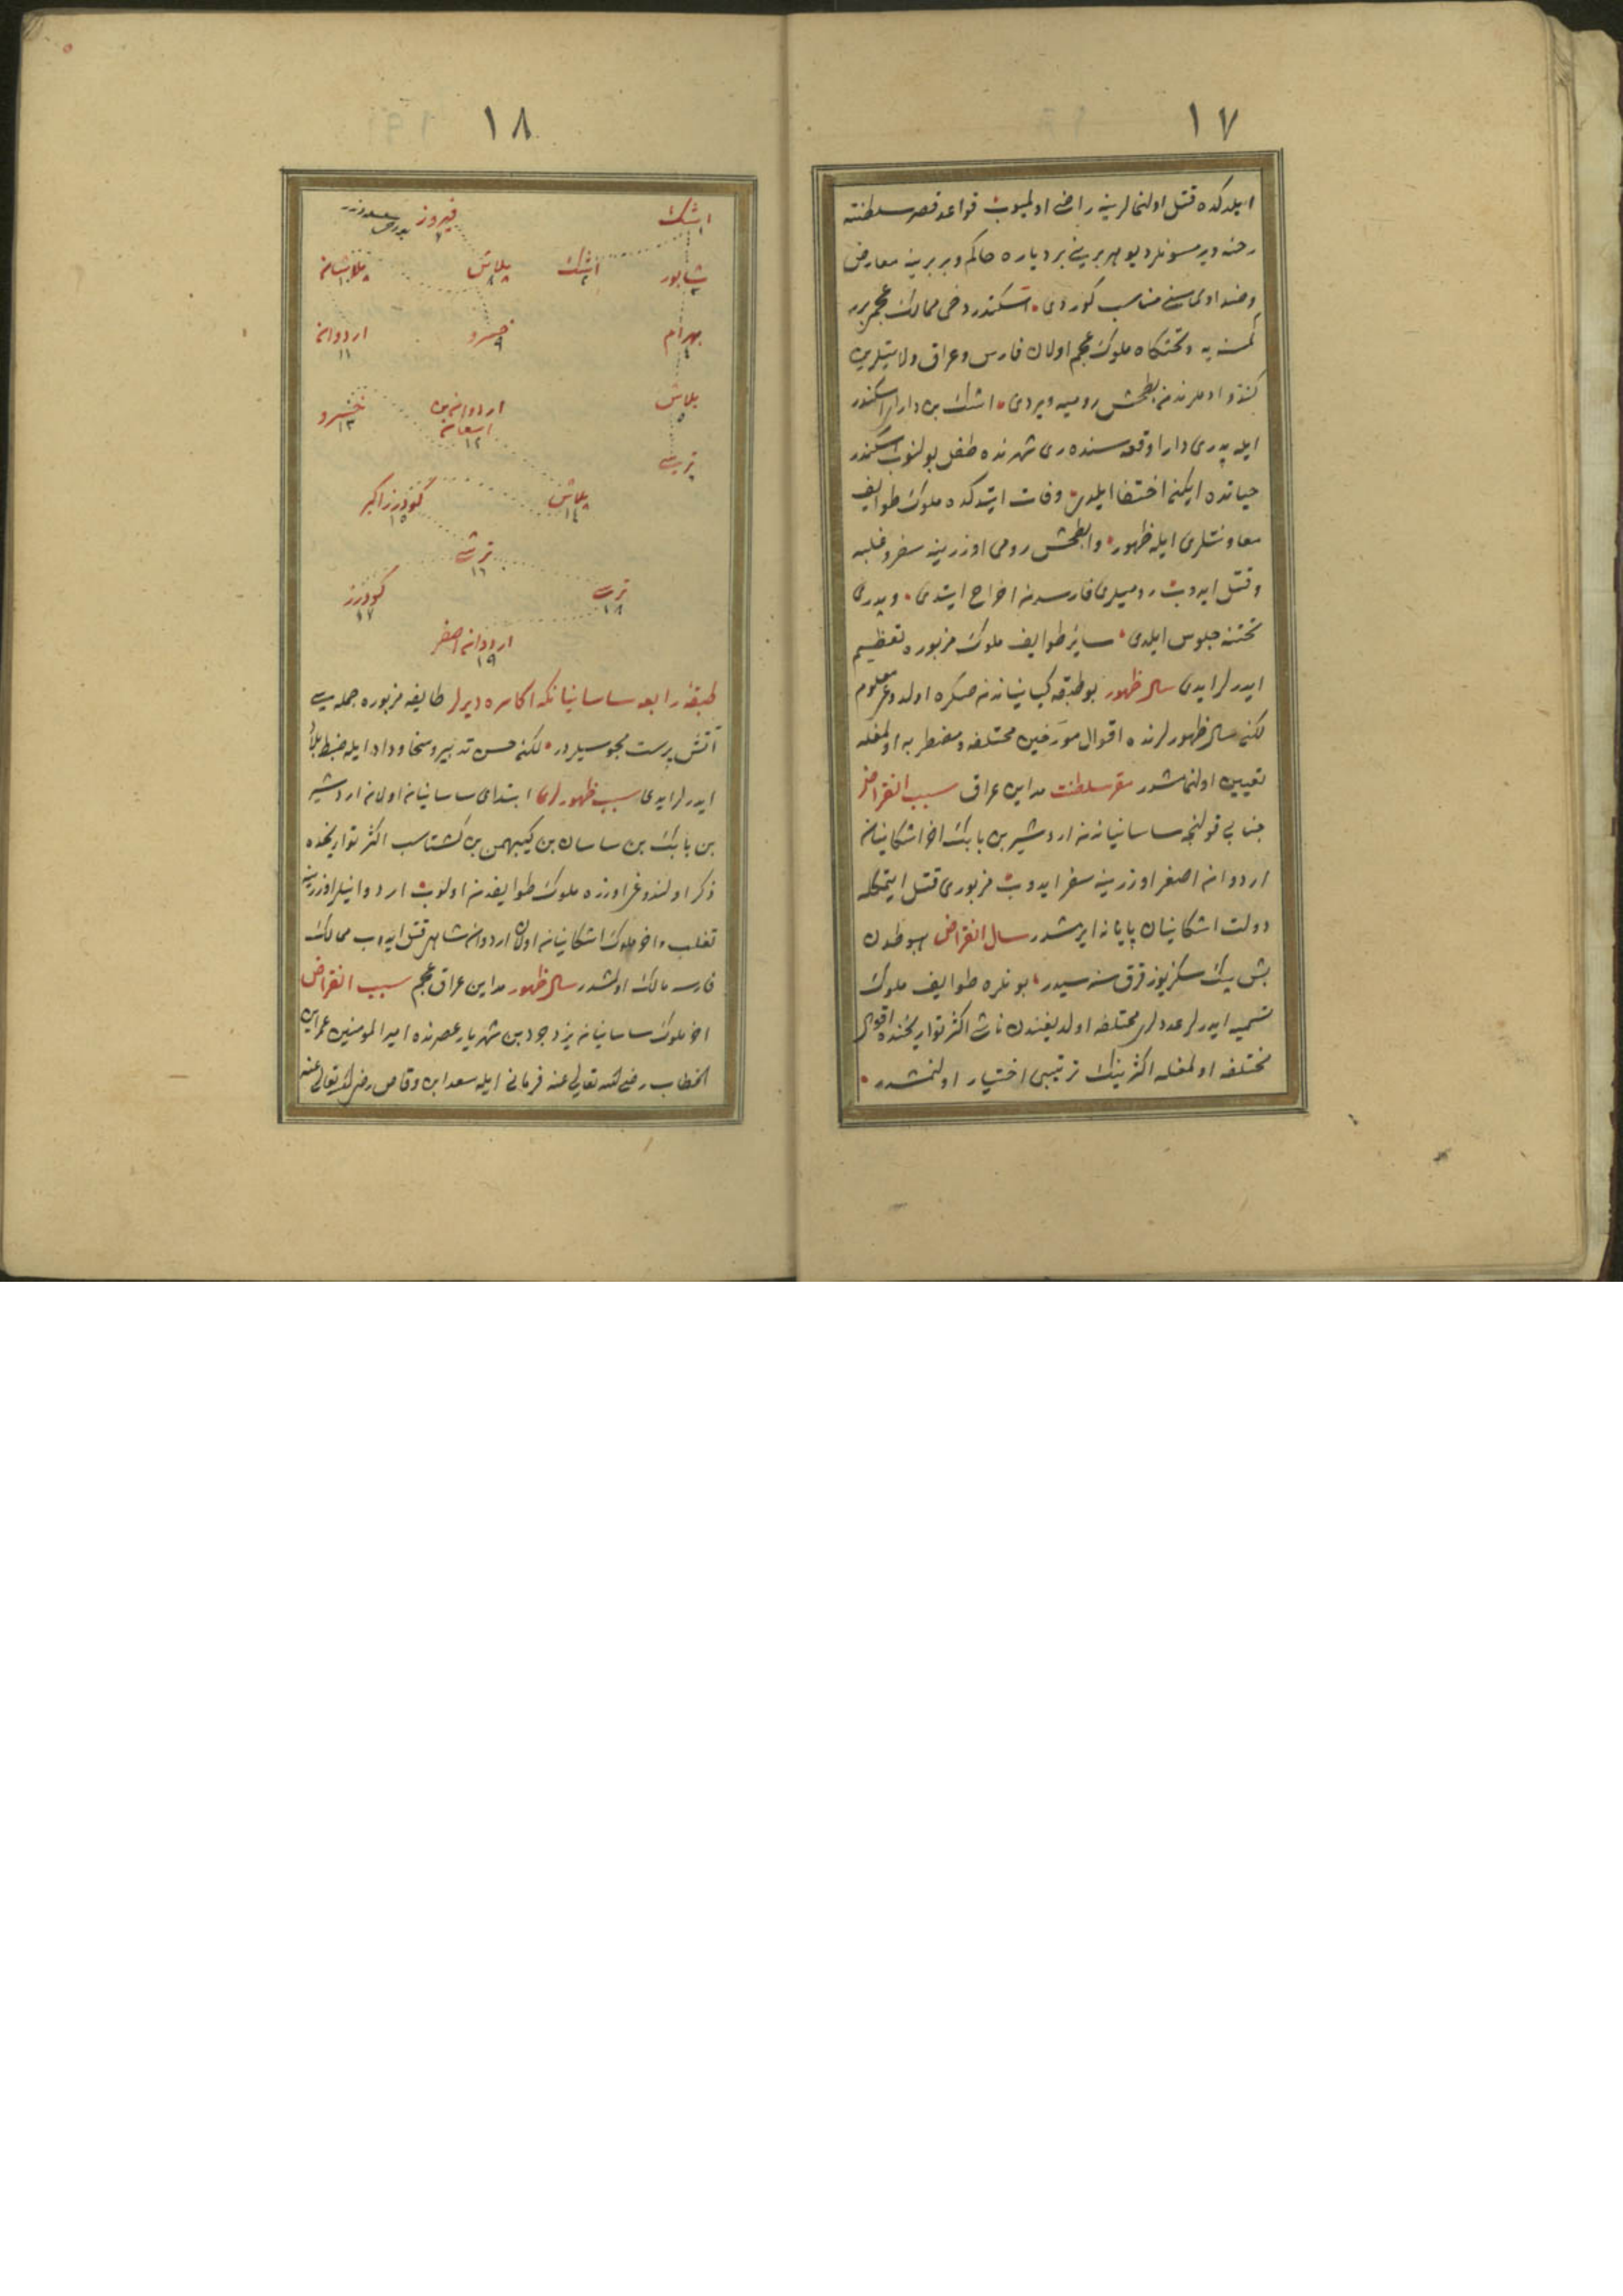 ١٧
ایلدكده قتل اولنمالرینه راضی اولمیوب قواعد قصر سلطنته
رخنه ویرمسونلر دیو هر برینی بر دیاره حاكم و بربرینه معارض
وضد اولماسنی مناسب كوردی اسكندر دخی ممالك عجمی برر
كمسنه یه وتختكاه ملوك عجم اولان فارس وعراق ولایتلرین
كندو ادملرندن ابطحش رومیه ویردی اشك بن دارا اسكندر
ایله پدری دارا وقعه سنده ری شهرنده طفل بولنوب اسكندر
حیاتده ایكن اختفا ایلدی وفات ایتدكده ملوك طوایف
معاونتلری ایله ظهور وابطحش رومی اوزرینه سفر وغلبه
وقتل ایدوب رومیلری فارسدن اخراج ایتدی وپدری
تختنه جلوس ایلدی سایر طوایف ملوك مزبوره تعظیم
ایدرلر ایدی سال ظهور بو طبقه كیانیاندن صكره اولدوغی معلوم
لكن سال ظهورلرنده اقوال مورخین مختلفه ومضطربه اولمغله
تعیین اولنمامشدر مقر سلطنت مداین عراق سبب انقراض
جنابی قولنجه ساسانیاندن اردشیر بن بابك اخر اشكانیان
اردوان اصغر اوزرینه سفر ایدوب مزبوری قتل ایتمكله
دولت اشكانیان پایانه ایرمشدر سال انقراض هبوطدن
بش بیك سكز یوز قرق سنه سیدر بونلره طوایف ملوك
تسمیه ایدرلر عددلری مختلف اولدیغندن ناشی اكثر تواریخنده اقوال
مختلفه اولمغله اكثرینك ترتیبی اختیار اولنمشدر
١٨
اشك ١ فیروز ٧
شاپور ٣ اشك ٢ پلاش ٨ پلاشان ١٠
بهرام ٤ خسرو ٩ اردوان ١١
بلاش ٥ اردوان بن اشغان ١٢ خسرو ١٣
پلاش ١٤ كودرز اكبر ١٥
١٦
١٨ كودرز ١٧
اردوان اصغر ١٩
طبقهٔ رابعه ساسانیانكه اكاسره دیرلر طایفه مزبوره جمله سی
آتش پرست مجوسیلردر لكن حسن تدبیر وسخا وداد ایله ضبط بلاد
ایدرلر ایدی سبب ظهورلری ابتدای ساسانیان اولان اردشیر
بن بابك بن ساسان بن كیبهمن بن كشتاسب اكثر تواریخده
ذكر اولندوغی اوزره ملوك طوایفدن اولوب اردوانیلر اوزرینه
تغلب واخر ملوك اشكانیان اولان اردوان شاهی قتل ایدوب ممالك
فارسه مالك اولمشدر سال ظهور مداین عراق عجم سبب انقراض
اخر ملوك ساسانیان یزدجرد بن شهریار عصرنده امیر المومنین عمر ابن
الخطاب رضی الله تعالی عنه فرمانی ایله سعد ابن وقاص رضی الله تعالی عنه